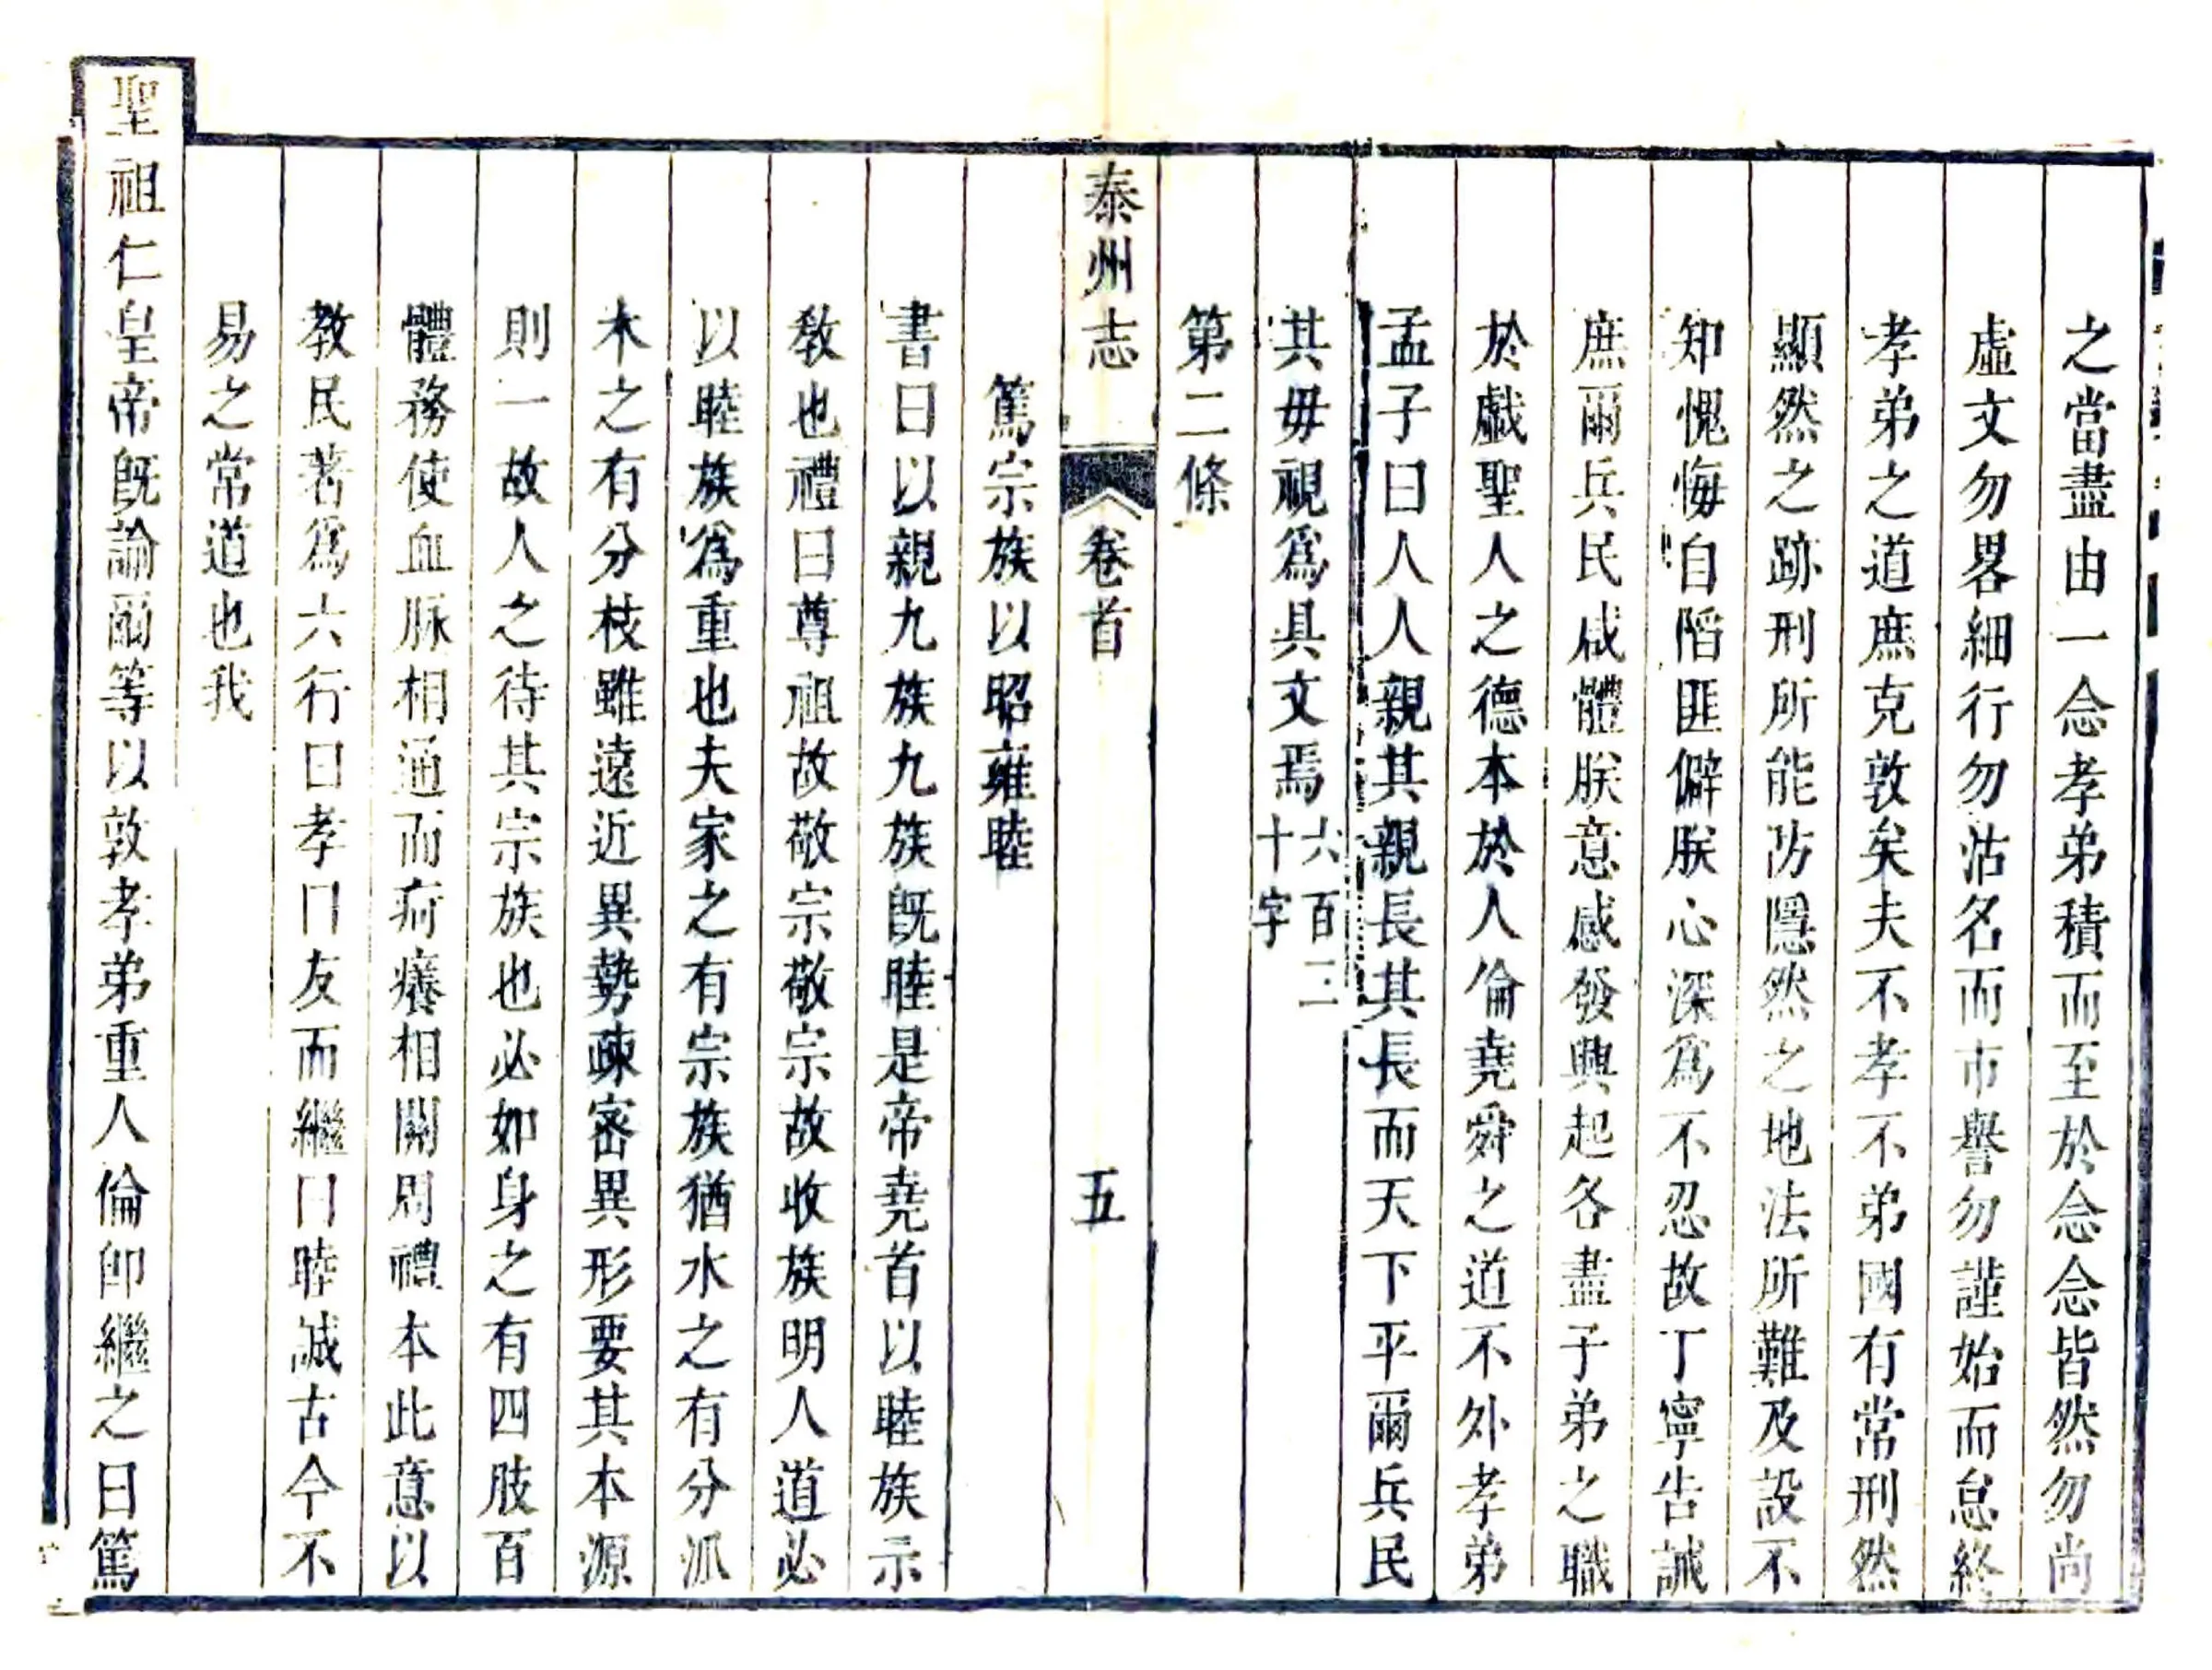 之當盡由一念孝弟積而至於念念皆然勿尚
虛文勿畧細行勿沽名而市譽勿謹始而怠終
孝弟之道庶克敦矣夫不孝不弟國有常刑然
顯然之跡刑所能防隱然之地法所難及設不
知愧悔自陷匪僻朕心深爲不忍故丁寧告誡
庶爾兵民咸體朕意感發興起各盡子弟之職
於戲聖人之德本於人倫堯舜之道不外孝弟
孟子曰人人親其親長其長而天下平爾兵民
其毋視爲具文焉六百二十字
第二條
泰州志 卷首 五
篤宗族以昭雍睦
書曰以親九族九族旣睦是帝堯首以睦族示
敎也禮曰尊祖故敬宗敬宗故收族明人道必
以睦族爲重也夫家之有宗族猶水之有分派
木之有分枝雖遠近異勢疎密異形要其本源
則一故人之待其宗族也必如身之有四肢百
體務使血脉相通而疴癢相關周禮本此意以
教民著爲六行曰孝曰友而繼曰睦誠古今不
易之常道也我
聖祖仁皇帝旣諭爾等以敦孝弟重人倫卽繼之曰篤